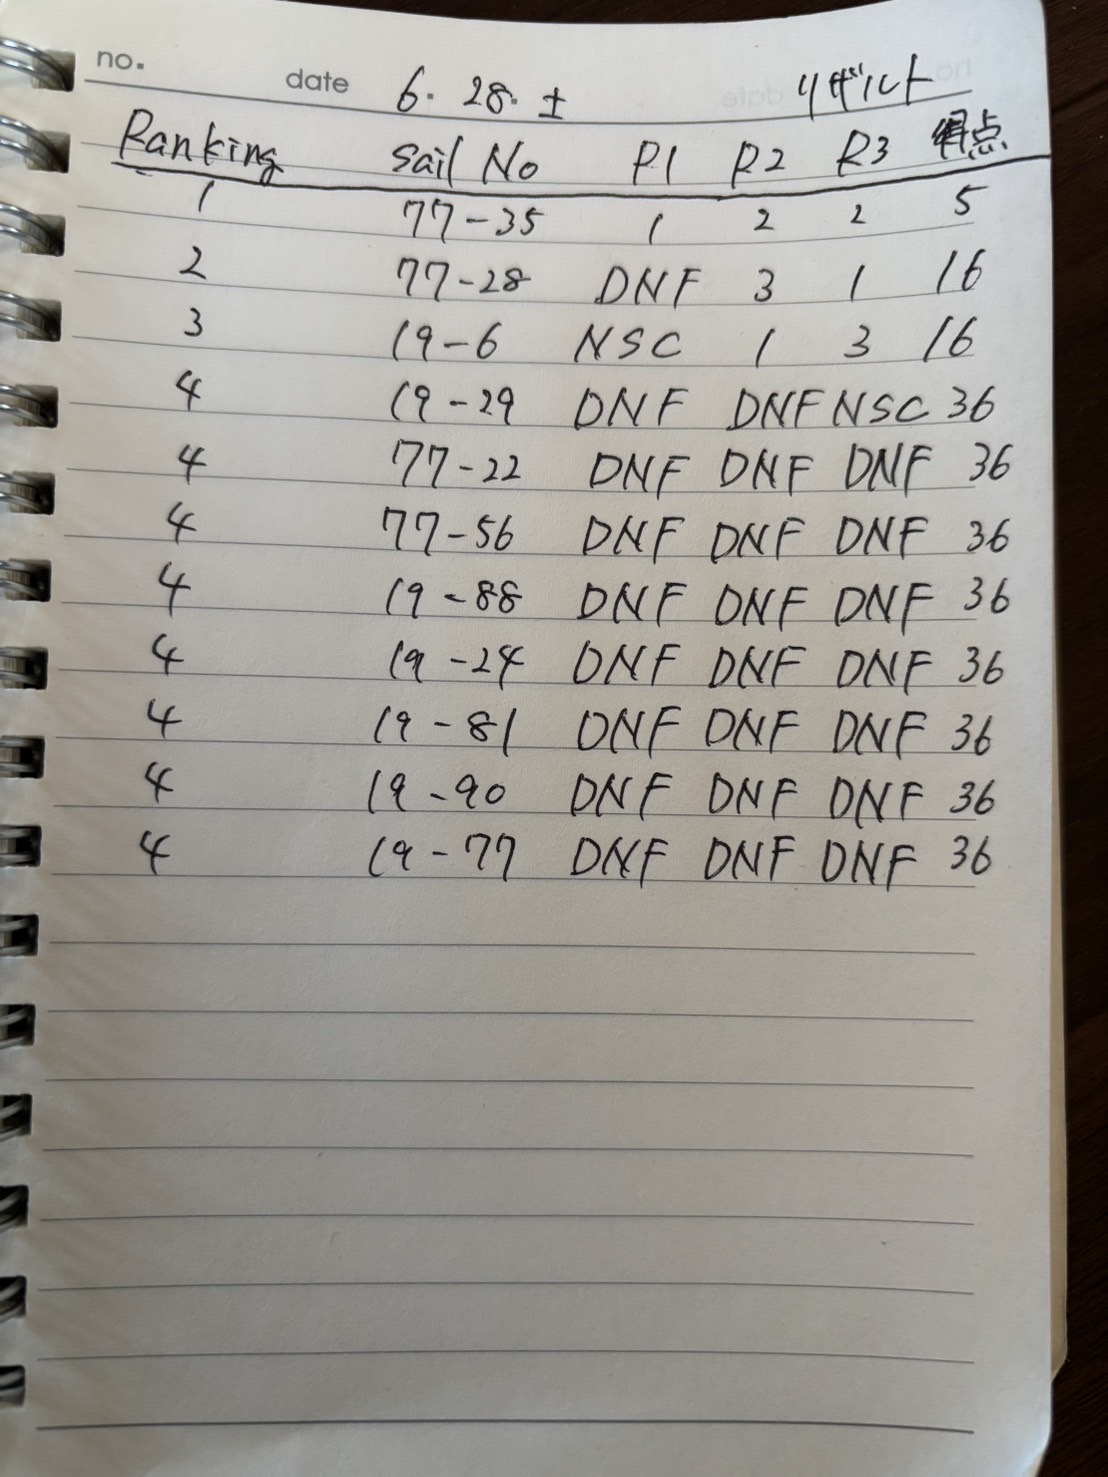 no.
date 6. 28. 土 リザルト
Ranking sail No R1 R2 R3 得点
1 77-35 1 2 2 5
2 77-28 DNF 3 1 16
3 19-6 NSC 1 3 16
4 19-29 DNF DNF NSC 36
4 77-22 DNF DNF DNF 36
4 77-56 DNF DNF DNF 36
4 19-88 DNF DNF DNF 36
4 19-24 DNF DNF DNF 36
4 19-81 DNF DNF DNF 36
4 19-90 DNF DNF DNF 36
4 19-77 DNF DNF DNF 36